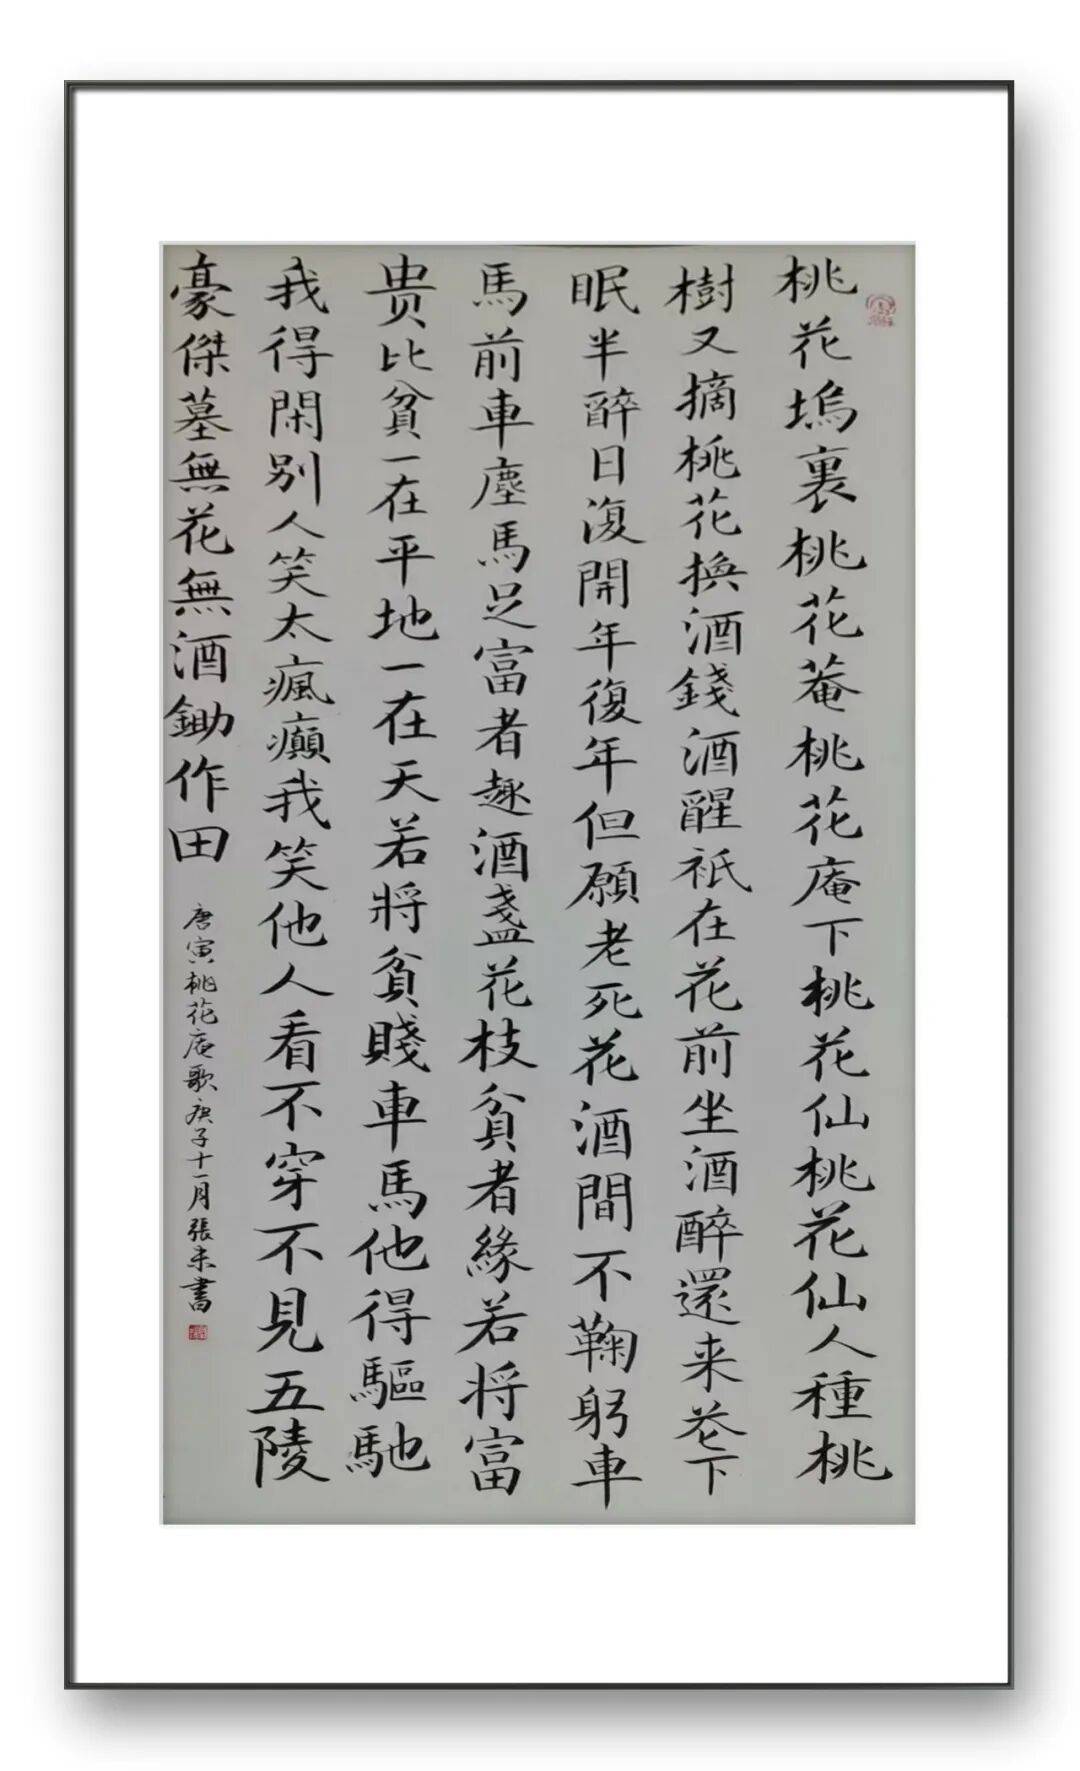 桃花塢裏桃花菴桃花庵下桃花仙桃花仙人種桃
樹又摘桃花換酒錢酒醒祇在花前坐酒醉還来花下
眠半醉日復開年復年但願老死花酒間不鞠躬車
馬前車塵馬足富者趣酒盞花枝貧者緣若将富
贵比貧一在平地一在天若將貧賤車馬他得驅馳
我得閑別人笑太瘋癲我笑他人看不穿不見五陵
豪傑墓無花無酒鋤作田
唐寅桃花庵歌庚子十一月張未書